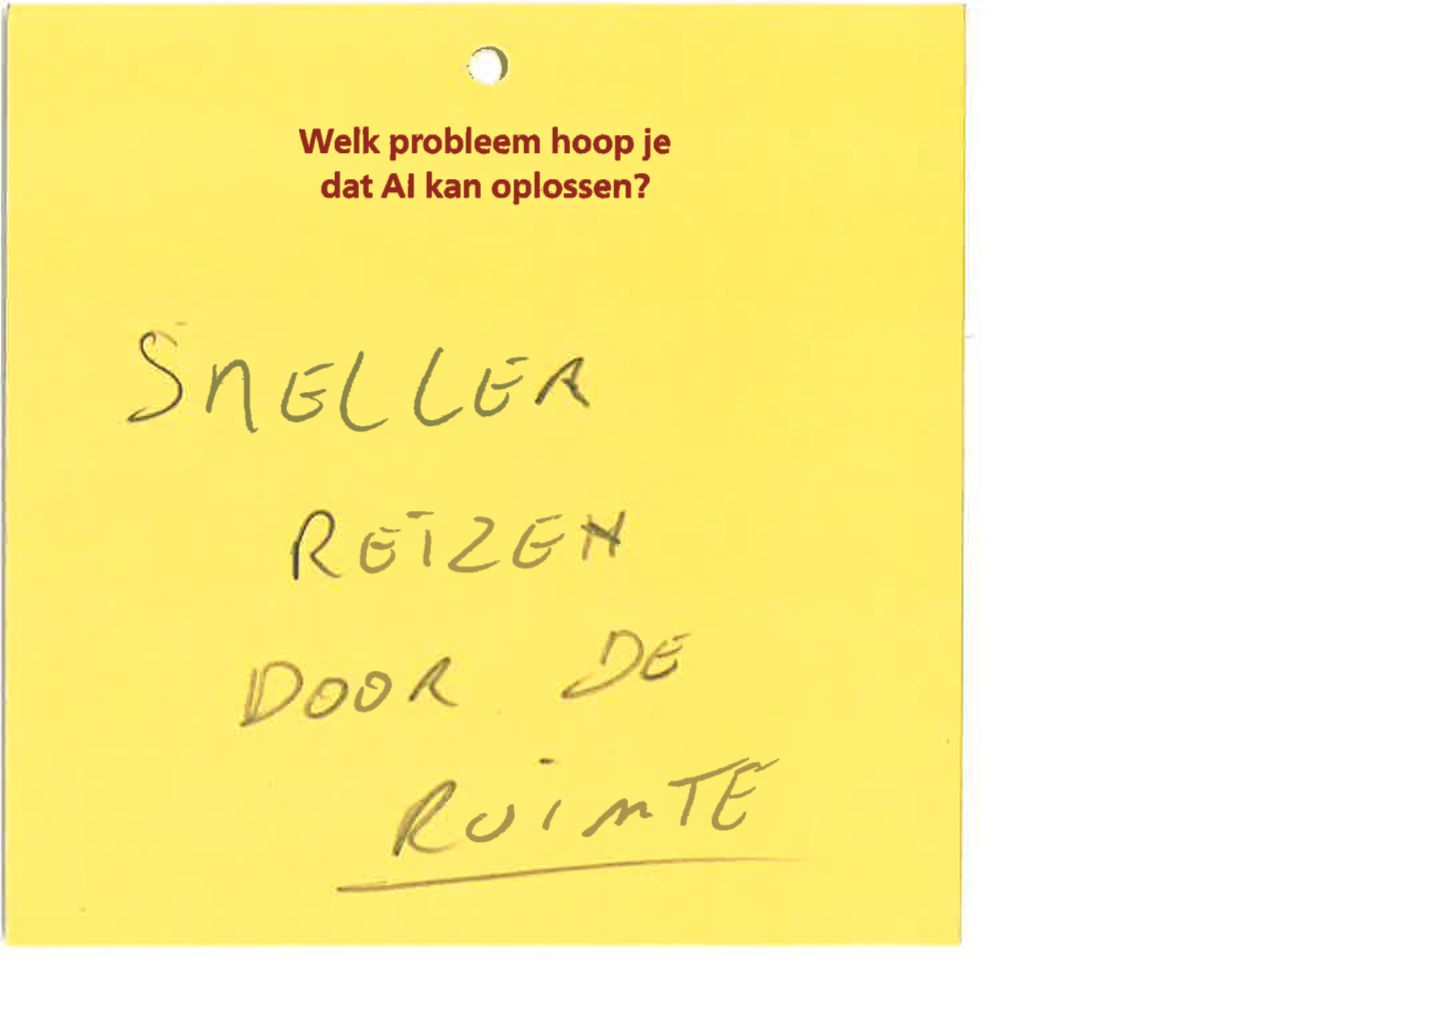 Welk probleem hoop je
dat AI kan oplossen?
SNELLER
REIZEN
DOOR DE
RUIMTE